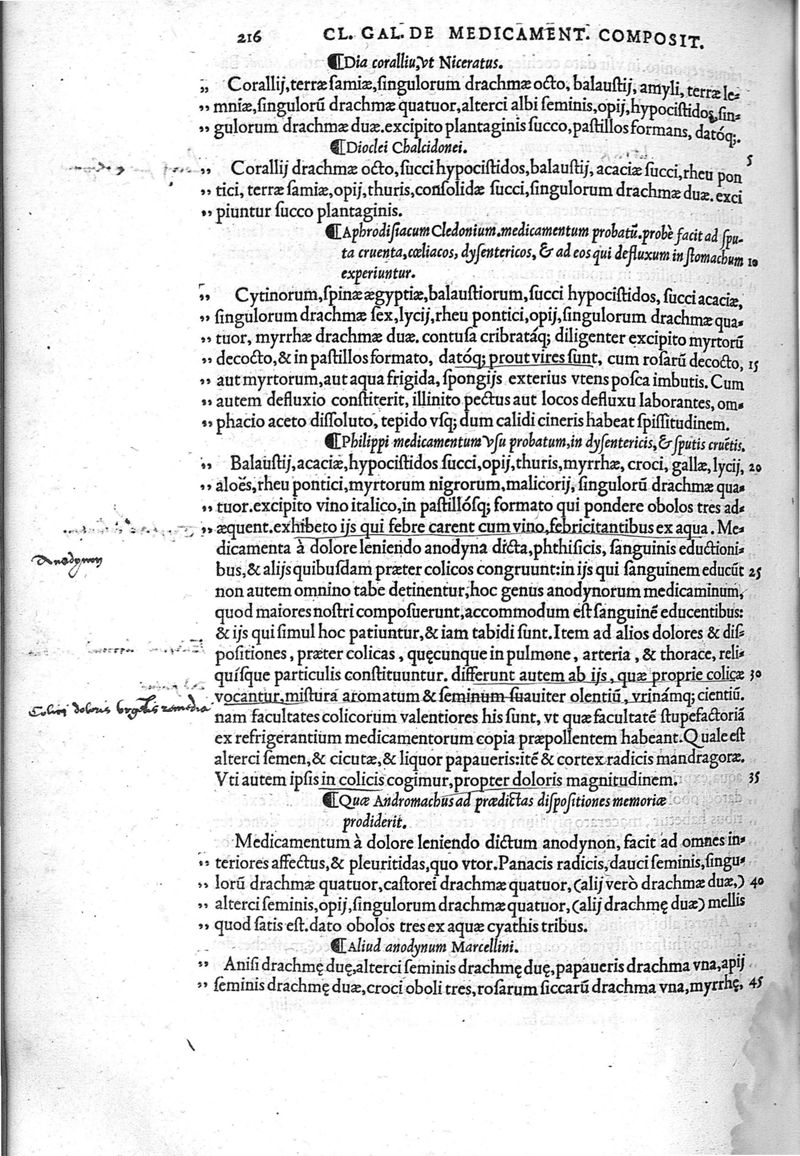 216 CL. GAL. DE MEDICAMENT. COMPOSIT.
¶Dia coralliu, vt Niceratus.
„ Corallij, terræ samiæ, singulorum drachmæ octo, balaustij, amyli, terræ le-
„ mniæ, singulorũ drachmæ quatuor, alterci albi seminis, opij, hypocistidos, sin-
„ gulorum drachmæ duæ. excipito plantaginis succo, pastillos formans, datóq;.
¶Dioclei Chalcidonei. 5
„ Corallij drachmæ octo, succi hypocistidos, balaustij, acaciæ succi, rheu pon
„ tici, terræ samiæ, opij, thuris, consolidæ succi, singulorum drachmæ duæ. exci
„ piuntur succo plantaginis.
¶Aphrodisiacum Cledonium. medicamentum probatũ. probè facit ad spu-
ta cruenta, cœliacos, dysentericos, & ad eos qui defluxum in stomachum 10
experiuntur.
„ Cytinorum, spinæ ægyptiæ, balaustiorum, succi hypocistidos, succi acaciæ,
„ singulorum drachmæ sex, lycij, rheu pontici, opij, singulorum drachmæ qua-
„ tuor, myrrhæ drachmæ duæ. contusa cribratáq; diligenter excipito myrtorũ
„ decocto, & in pastillos formato, datóq; prout vires sunt, cum rosarũ decocto, 15
„ aut myrtorum, aut aqua frigida, spongijs exterius vtens posca imbutis. Cum
„ autem defluxio constiterit, illinito pectus aut locos defluxu laborantes, om-
„ phacio aceto dissoluto, tepido vsq; dum calidi cineris habeat spissitudinem.
¶Philippi medicamentum vsu probatum, in dysentericis, & sputis cruẽtis.
„ Balaustij, acaciæ, hypocistidos succi, opij, thuris, myrrhæ, croci, gallæ, lycij, 20
„ aloës, rheu pontici, myrtorum nigrorum, malicorij, singulorũ drachmæ qua-
„ tuor. excipito vino italico, in pastillósq; formato qui pondere obolos tres ad-
„ æquent. exhibeto ijs qui febre carent cum vino, febricitantibus ex aqua. Me-
dicamenta à dolore leniendo anodyna dicta, phthisicis, sanguinis eductioni-
Anodynon
bus, & alijs quibusdam præter colicos congruunt: in ijs qui sanguinem educũt 25
non autem omnino tabe detinentur, hoc genus anodynorum medicaminum,
quod maiores nostri composuerunt, accommodum est sanguinẽ educentibus:
& ijs qui simul hoc patiuntur, & iam tabidi sunt. Item ad alios dolores & dis-
positiones, præter colicas, quęcunque in pulmone, arteria, & thorace, reli-
quísque particulis constituuntur. differunt autem ab ijs, quæ proprie colicæ 30
vocantur, mistura aromatum & seminum suauiter olentiũ, vrinámq; cientiũ.
nam facultates colicorum valentiores his sunt, vt quæ facultatẽ stupefactoriã
ex refrigerantium medicamentorum copia præpollentem habeant. Quale est
alterci semen, & cicutæ, & liquor papaueris: itẽ & cortex radicis mandragoræ.
Vti autem ipsis in colicis cogimur, propter doloris magnitudinem. 35
¶Quæ Andromachus ad prædictas dispositiones memoriæ
prodiderit.
Medicamentum à dolore leniendo dictum anodynon, facit ad omnes in-
„ teriores affectus, & pleuritidas, quo vtor. Panacis radicis, dauci seminis, singu-
„ lorũ drachmæ quatuor, castorei drachmæ quatuor, (alij verò drachmæ duæ,) 40
„ alterci seminis, opij, singulorum drachmæ quatuor, (alij drachmę duæ) mellis
„ quod satis est. dato obolos tres ex aquæ cyathis tribus.
¶Aliud anodynum Marcellini.
„ Anisi drachmę duę, alterci seminis drachmę duę, papaueris drachma vna, apij
„ seminis drachmę duæ, croci oboli tres, rosarum siccarũ drachma vna, myrrhę, 45